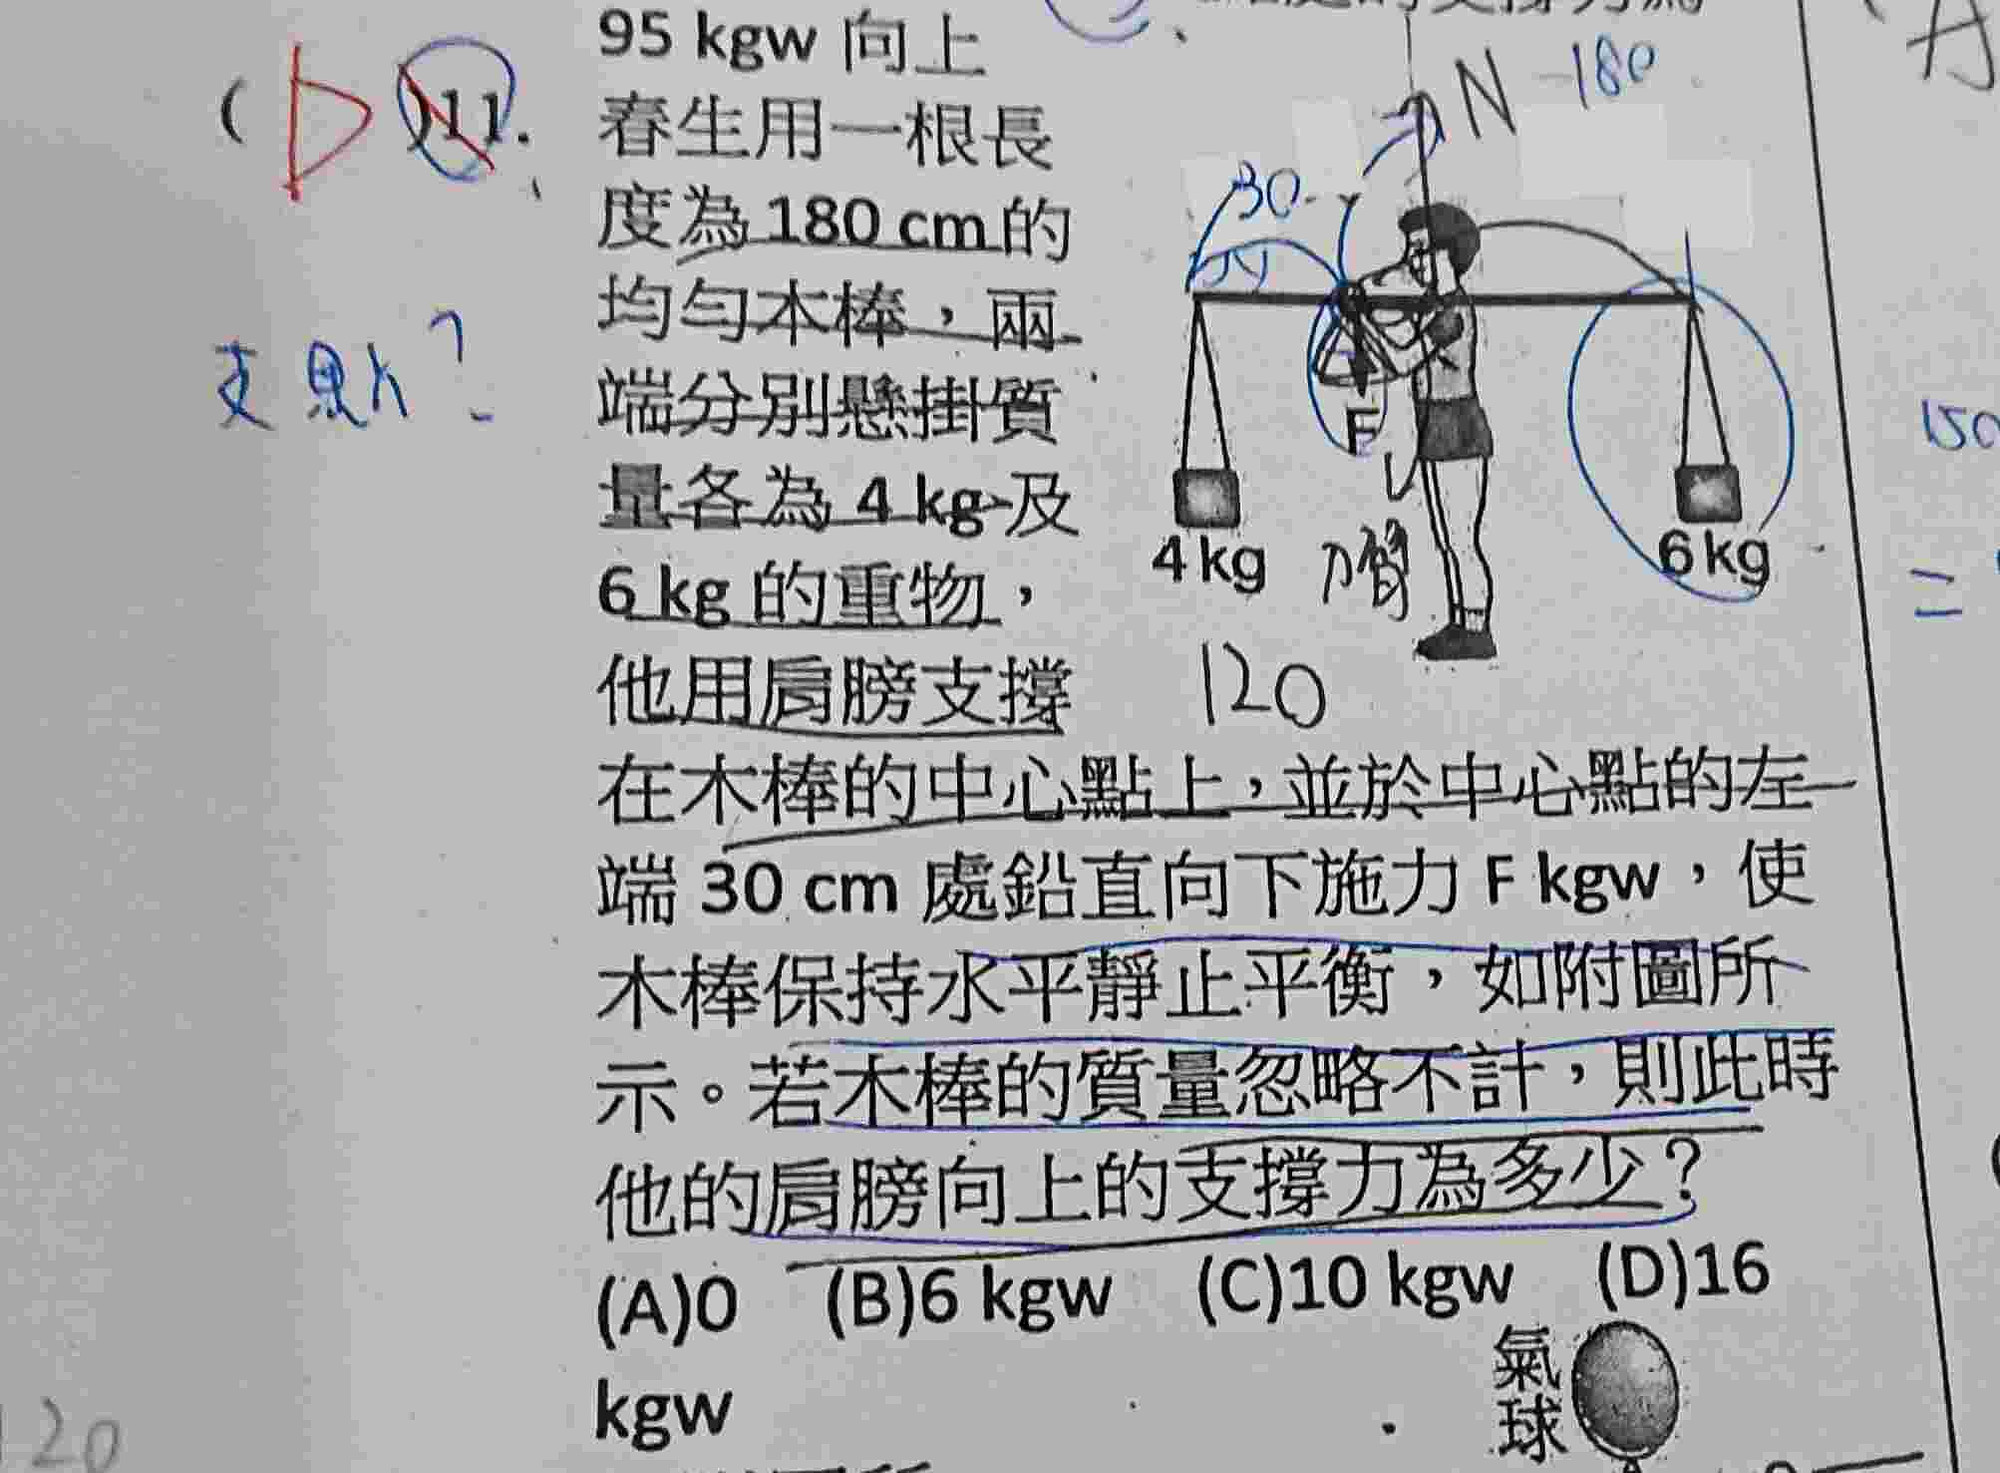 95 kgw 向上
( D )11. 春生用一根長
度為 180 cm 的
均勻木棒，兩
端分別懸掛質
量各為 4 kg 及
6 kg 的重物，
他用肩膀支撐
在木棒的中心點上，並於中心點的左
端 30 cm 處鉛直向下施力 F kgw，使
木棒保持水平靜止平衡，如附圖所
示。若木棒的質量忽略不計，則此時
他的肩膀向上的支撐力為多少？
(A)0 (B)6 kgw (C)10 kgw (D)16
kgw
支點？
N
180
30
F
4 kg
6 kg
力臂
120
150
=
A
氣
球
120